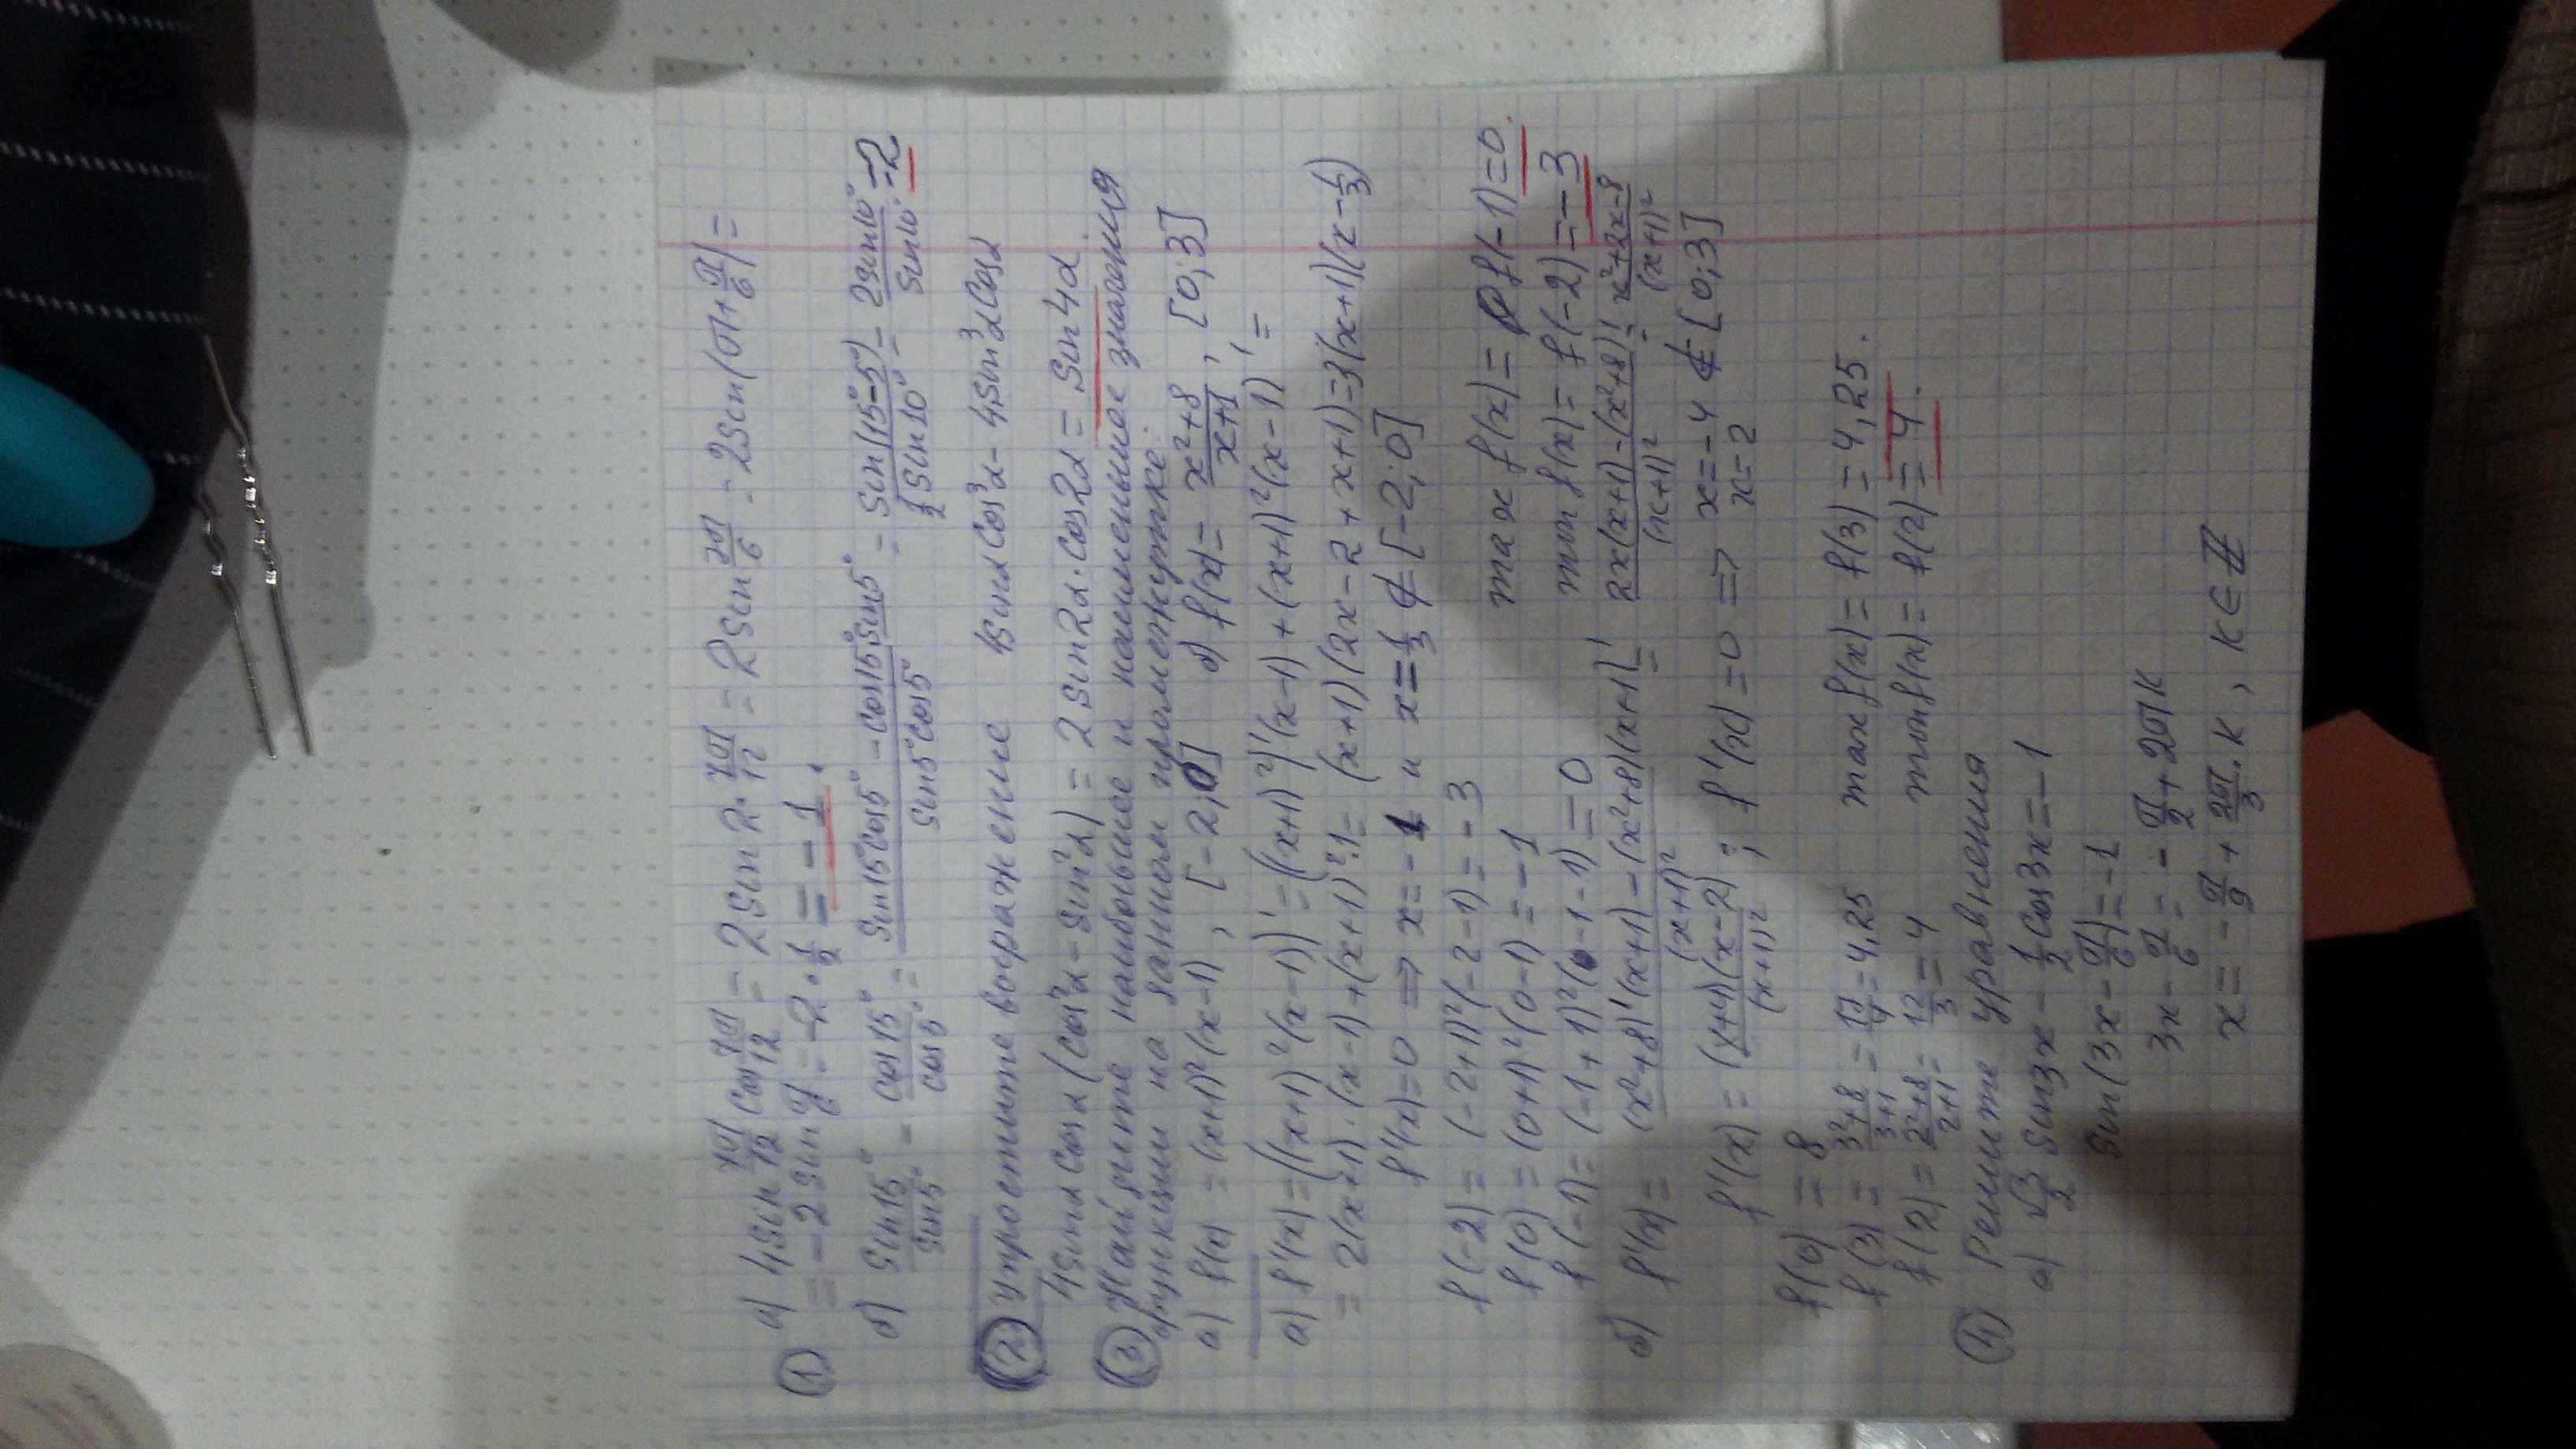 ① а) 4Sin 7π/12 Cos 7π/12 = 2Sin 2·7π/12 = 2Sin 7π/6 = 2Sin(π+π/6) =
= -2Sin π/6 = -2·1/2 = -1.
б) Sin15°/Sin5° - Cos15°/Cos5° = (Sin15°Cos5° - Cos15°Sin5°)/(Sin5°Cos5°) = Sin(15°-5°)/(1/2 Sin10°) = 2Sin10°/Sin10° = 2
② Упростите выражение 4Sinα Cos³α - 4Sin³α Cosα
4Sinα Cosα (Cos²α - Sin²α) = 2Sin2α·Cos2α = Sin4α
③ Найдите наибольшее и наименьшее значения
функции на данном промежутке:
а) f(x) = (x+1)²(x-1), [-2;0] б) f(x) = (x²+8)/(x+1), [0;3]
а) f'(x) = ((x+1)²(x-1))' = ((x+1)²)'(x-1) + (x+1)²(x-1)' =
= 2(x+1)·(x-1)+(x+1)²·1 = (x+1)(2x-2+x+1) = 3(x+1)(x-1/3)
f'(x)=0 => x=-1 и x=1/3 ∉ [-2;0]
f(-2) = (-2+1)²(-2-1) = -3
f(0) = (0+1)²(0-1) = -1 max f(x) = f(-1) = 0.
f(-1) = (-1+1)²(-1-1) = 0 min f(x) = f(-2) = -3
б) f'(x) = ((x²+8)'(x+1) - (x²+8)(x+1)')/(x+1)² = (2x(x+1)-(x²+8)·1)/(x+1)² = (x²+2x-8)/(x+1)²
f'(x) = (x+4)(x-2)/(x+1)² ; f'(x) = 0 => x=-4 ∉ [0;3]
x=2
f(0) = 8
f(3) = (3²+8)/(3+1) = 17/4 = 4,25 max f(x) = f(3) = 4,25.
f(2) = (2²+8)/(2+1) = 12/3 = 4 min f(x) = f(2) = 4.
④ Решите уравнения
а) √3/2 Sin3x - 1/2 Cos3x = -1
Sin(3x - π/6) = -1
3x - π/6 = -π/2 + 2πk
x = -π/9 + 2π/3·k, k∈Z